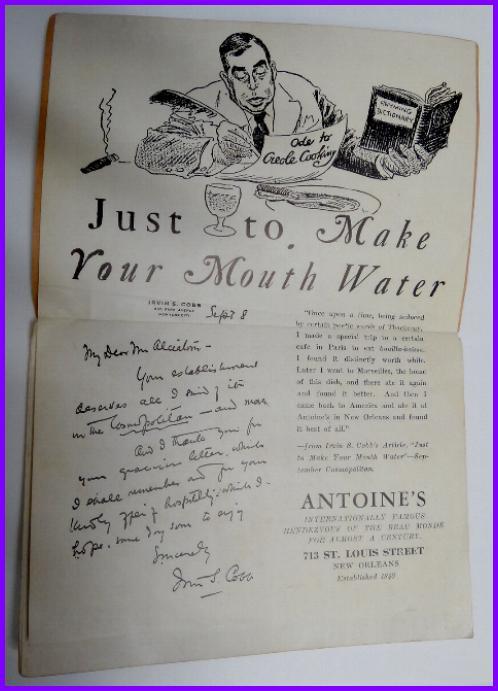 RHYMING
DICTIONARY
Ode to
Creole Cooking
Just to Make
Your Mouth Water
IRVIN S. COBB
Sept 8
My Dear Mr Alciatore -
Your establishment
deserves all I said of it
in the Cosmopolitan - and more
And I thank you for
your gracious letter, which
I shall remember and for your
kindly offer of hospitality, which I
hope, some day soon to enjoy
Sincerely
Irvin S. Cobb
"Once upon a time, being seduced
by certain poetic words of Thackeray,
I made a special trip to a certain
cafe in Paris to eat bouillabaisse.
I found it distinctly worth while.
Later I went to Marseilles, the home
of this dish, and there ate it again
and found it better. And then I
came back to America and ate it at
Antoine's in New Orleans and found
it best of all."
—from Irvin S. Cobb's Article, "Just
to Make Your Mouth Water"—Sep-
tember Cosmopolitan.
ANTOINE'S
INTERNATIONALLY FAMOUS
RENDEZVOUS OF THE BEAU MONDE
FOR ALMOST A CENTURY.
713 ST. LOUIS STREET
NEW ORLEANS
Established 1840